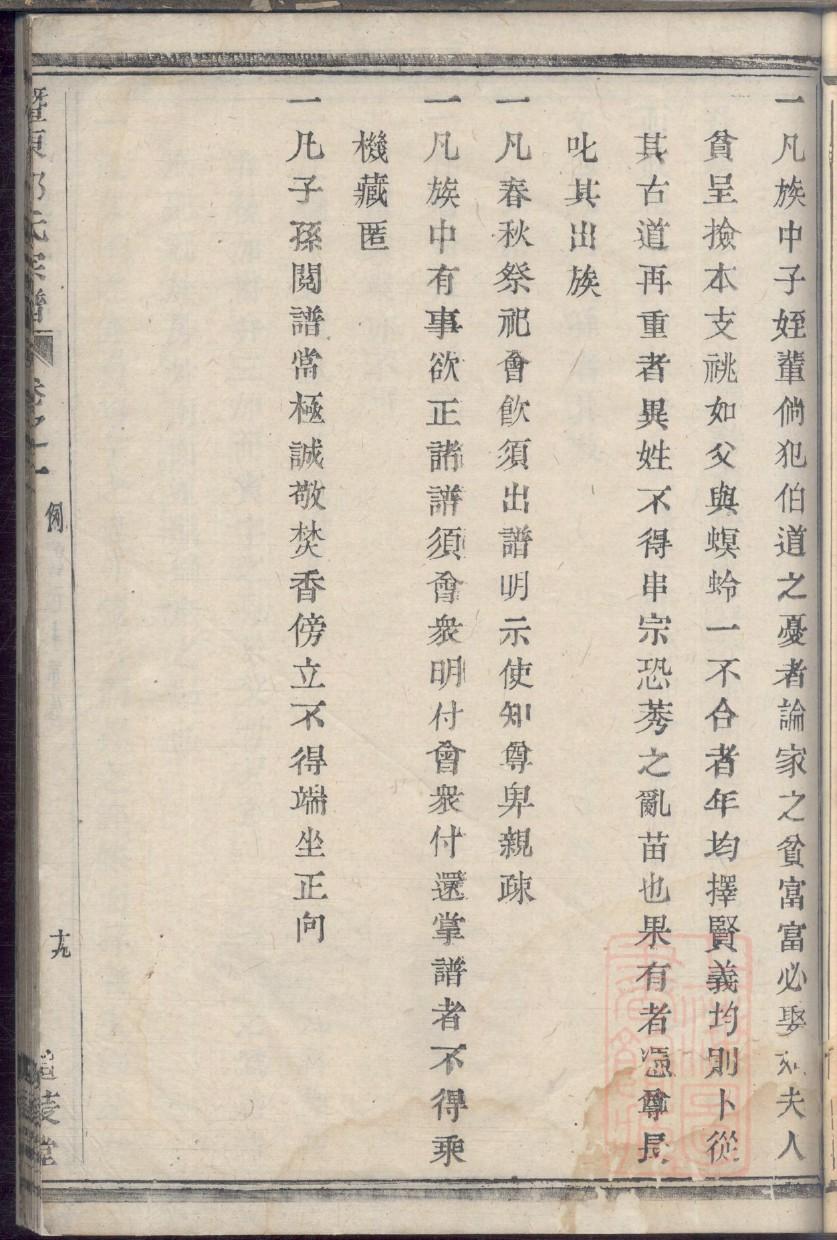 一凡族中子姪輩倘犯伯道之憂者論家之貧富富必娶如夫人
貧呈撿本支祧如父與螟蛉一不合者年均擇賢義均則卜從
其古道再重者異姓不得串宗恐莠之亂苗也果有者憑尊長
叱其出族
一凡春秋祭祀會飲須出譜明示使知尊卑親疎
一凡族中有事欲正諸譜須會衆明付會衆付還掌譜者不得乘
機藏匿
一凡子孫閱譜當極誠敬焚香傍立不得端坐正向
暨東 氏宗譜 卷之一 例 十九 堂